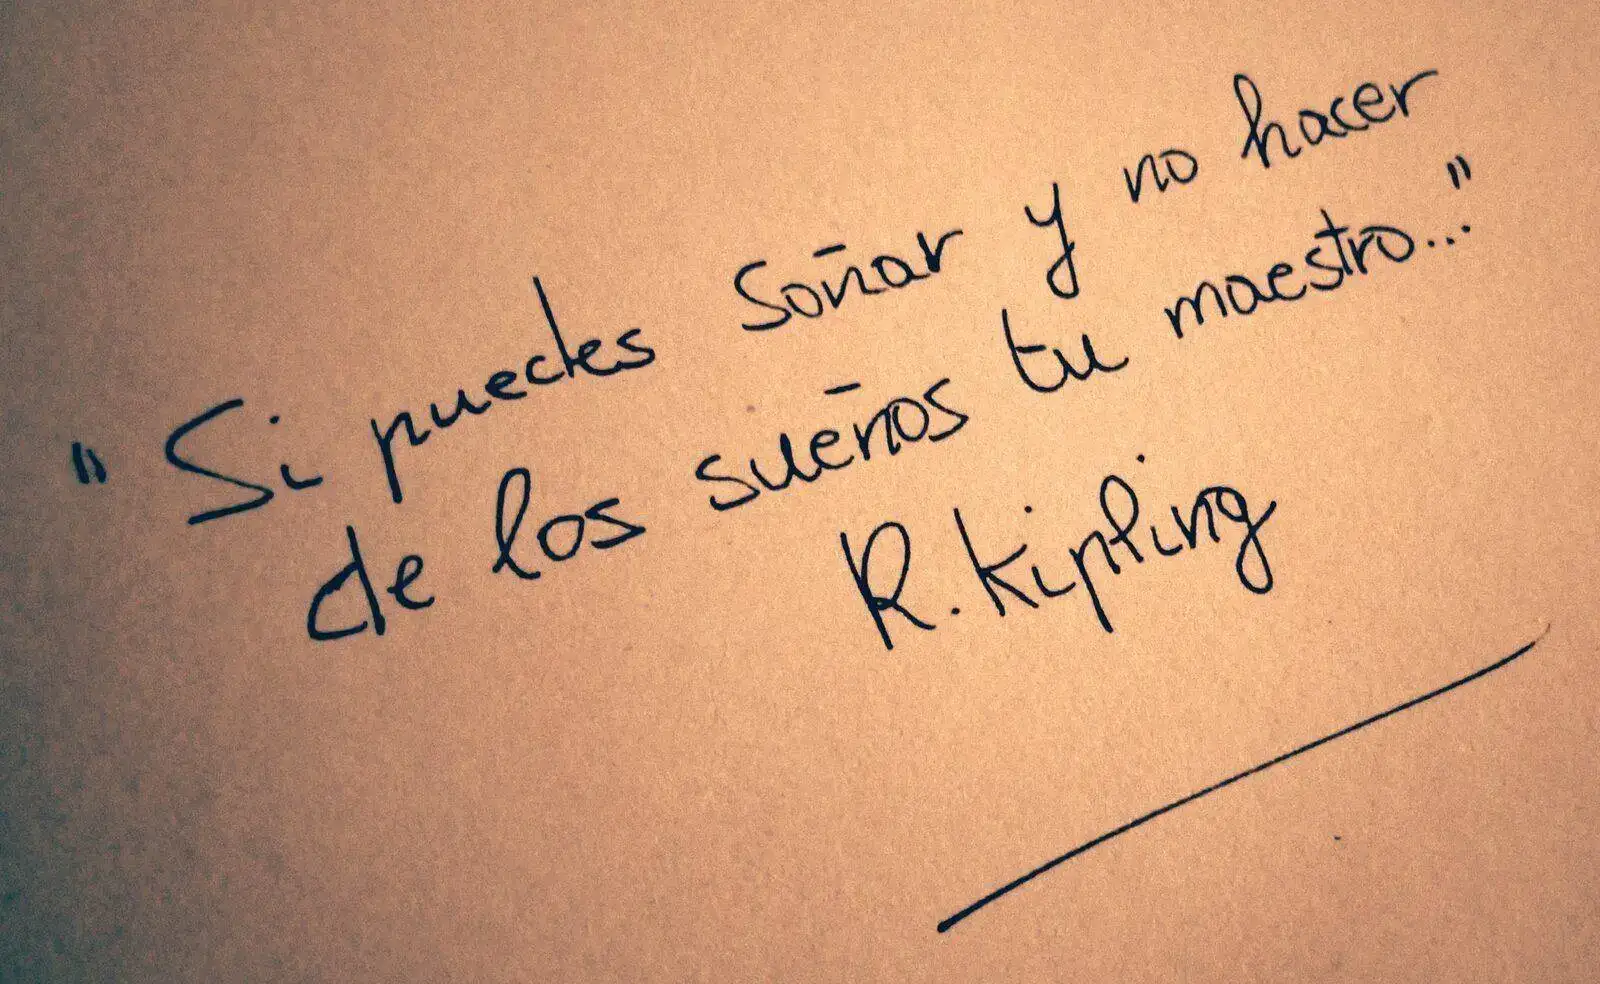 "Si puedes soñar y no hacer
de los sueños tu maestro..."
R. Kipling